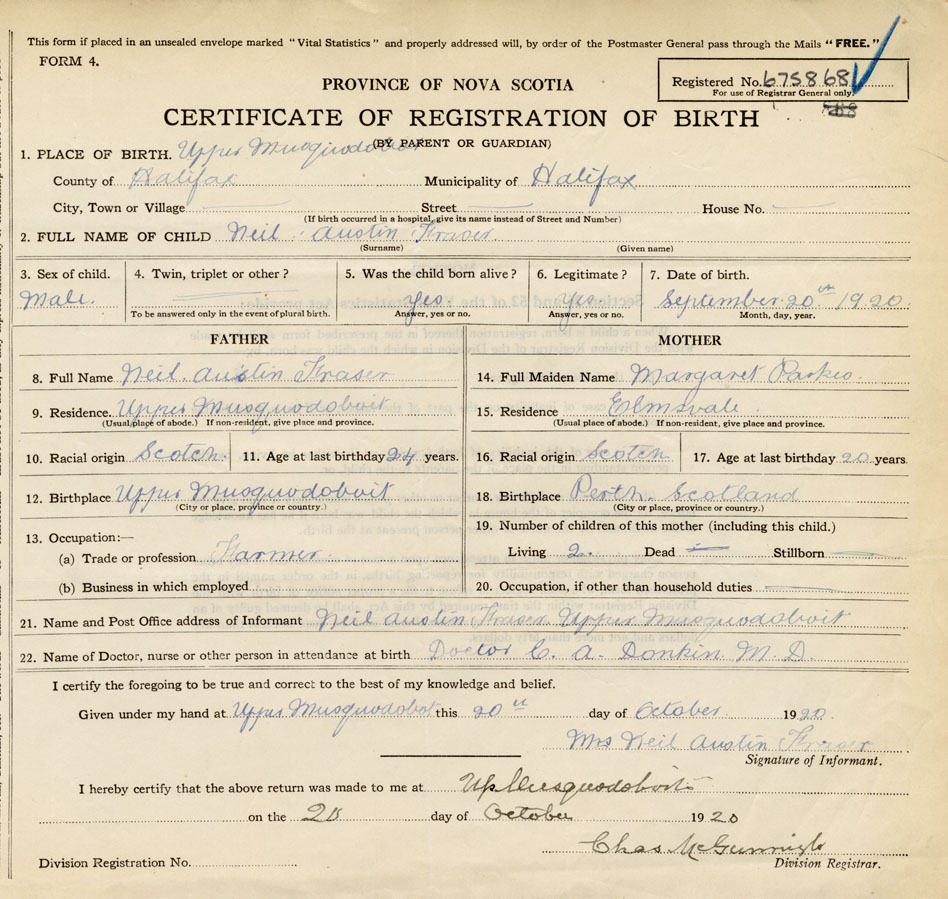 This form if placed in an unsealed envelope marked "Vital Statistics" and properly addressed will, by order of the Postmaster General pass through the Mails "FREE."
FORM 4.
Registered No. 675868
For use of Registrar General only.
PROVINCE OF NOVA SCOTIA
CERTIFICATE OF REGISTRATION OF BIRTH
(BY PARENT OR GUARDIAN)
1. PLACE OF BIRTH. Upper Musquodoboit
County of Halifax Municipality of Halifax
City, Town or Village Street House No.
(If birth occurred in a hospital, give its name instead of Street and Number)
2. FULL NAME OF CHILD Neil Austin Fraser
(Surname) (Given name)
3. Sex of child. 4. Twin, triplet or other? 5. Was the child born alive? 6. Legitimate? 7. Date of birth.
Male. Yes Yes September 20th 1920
To be answered only in the event of plural birth. Answer, yes or no. Answer, yes or no. Month, day, year.
FATHER MOTHER
8. Full Name Neil Austin Fraser 14. Full Maiden Name Margaret Parkes
9. Residence. Upper Musquodoboit 15. Residence Elmsvale
(Usual place of abode.) If non-resident, give place and province. (Usual place of abode.) If non-resident, give place and province.
10. Racial origin Scotch. 11. Age at last birthday 24 years. 16. Racial origin Scotch 17. Age at last birthday 20 years.
12. Birthplace Upper Musquodoboit 18. Birthplace Perth. Scotland
(City or place, province or country.) (City or place, province or country.)
13. Occupation:— 19. Number of children of this mother (including this child.)
(a) Trade or profession Farmer Living 2. Dead Stillborn
(b) Business in which employed 20. Occupation, if other than household duties
21. Name and Post Office address of Informant Neil Austin Fraser Upper Musquodoboit
22. Name of Doctor, nurse or other person in attendance at birth Doctor C. A. Donkin M.D.
I certify the foregoing to be true and correct to the best of my knowledge and belief.
Given under my hand at Upper Musquodobot this 20th day of October 1920.
Mrs Neil Austin Fraser
Signature of Informant.
I hereby certify that the above return was made to me at Up Musquodoboit
on the day of October 1920
Chas
Division Registration No. Division Registrar.